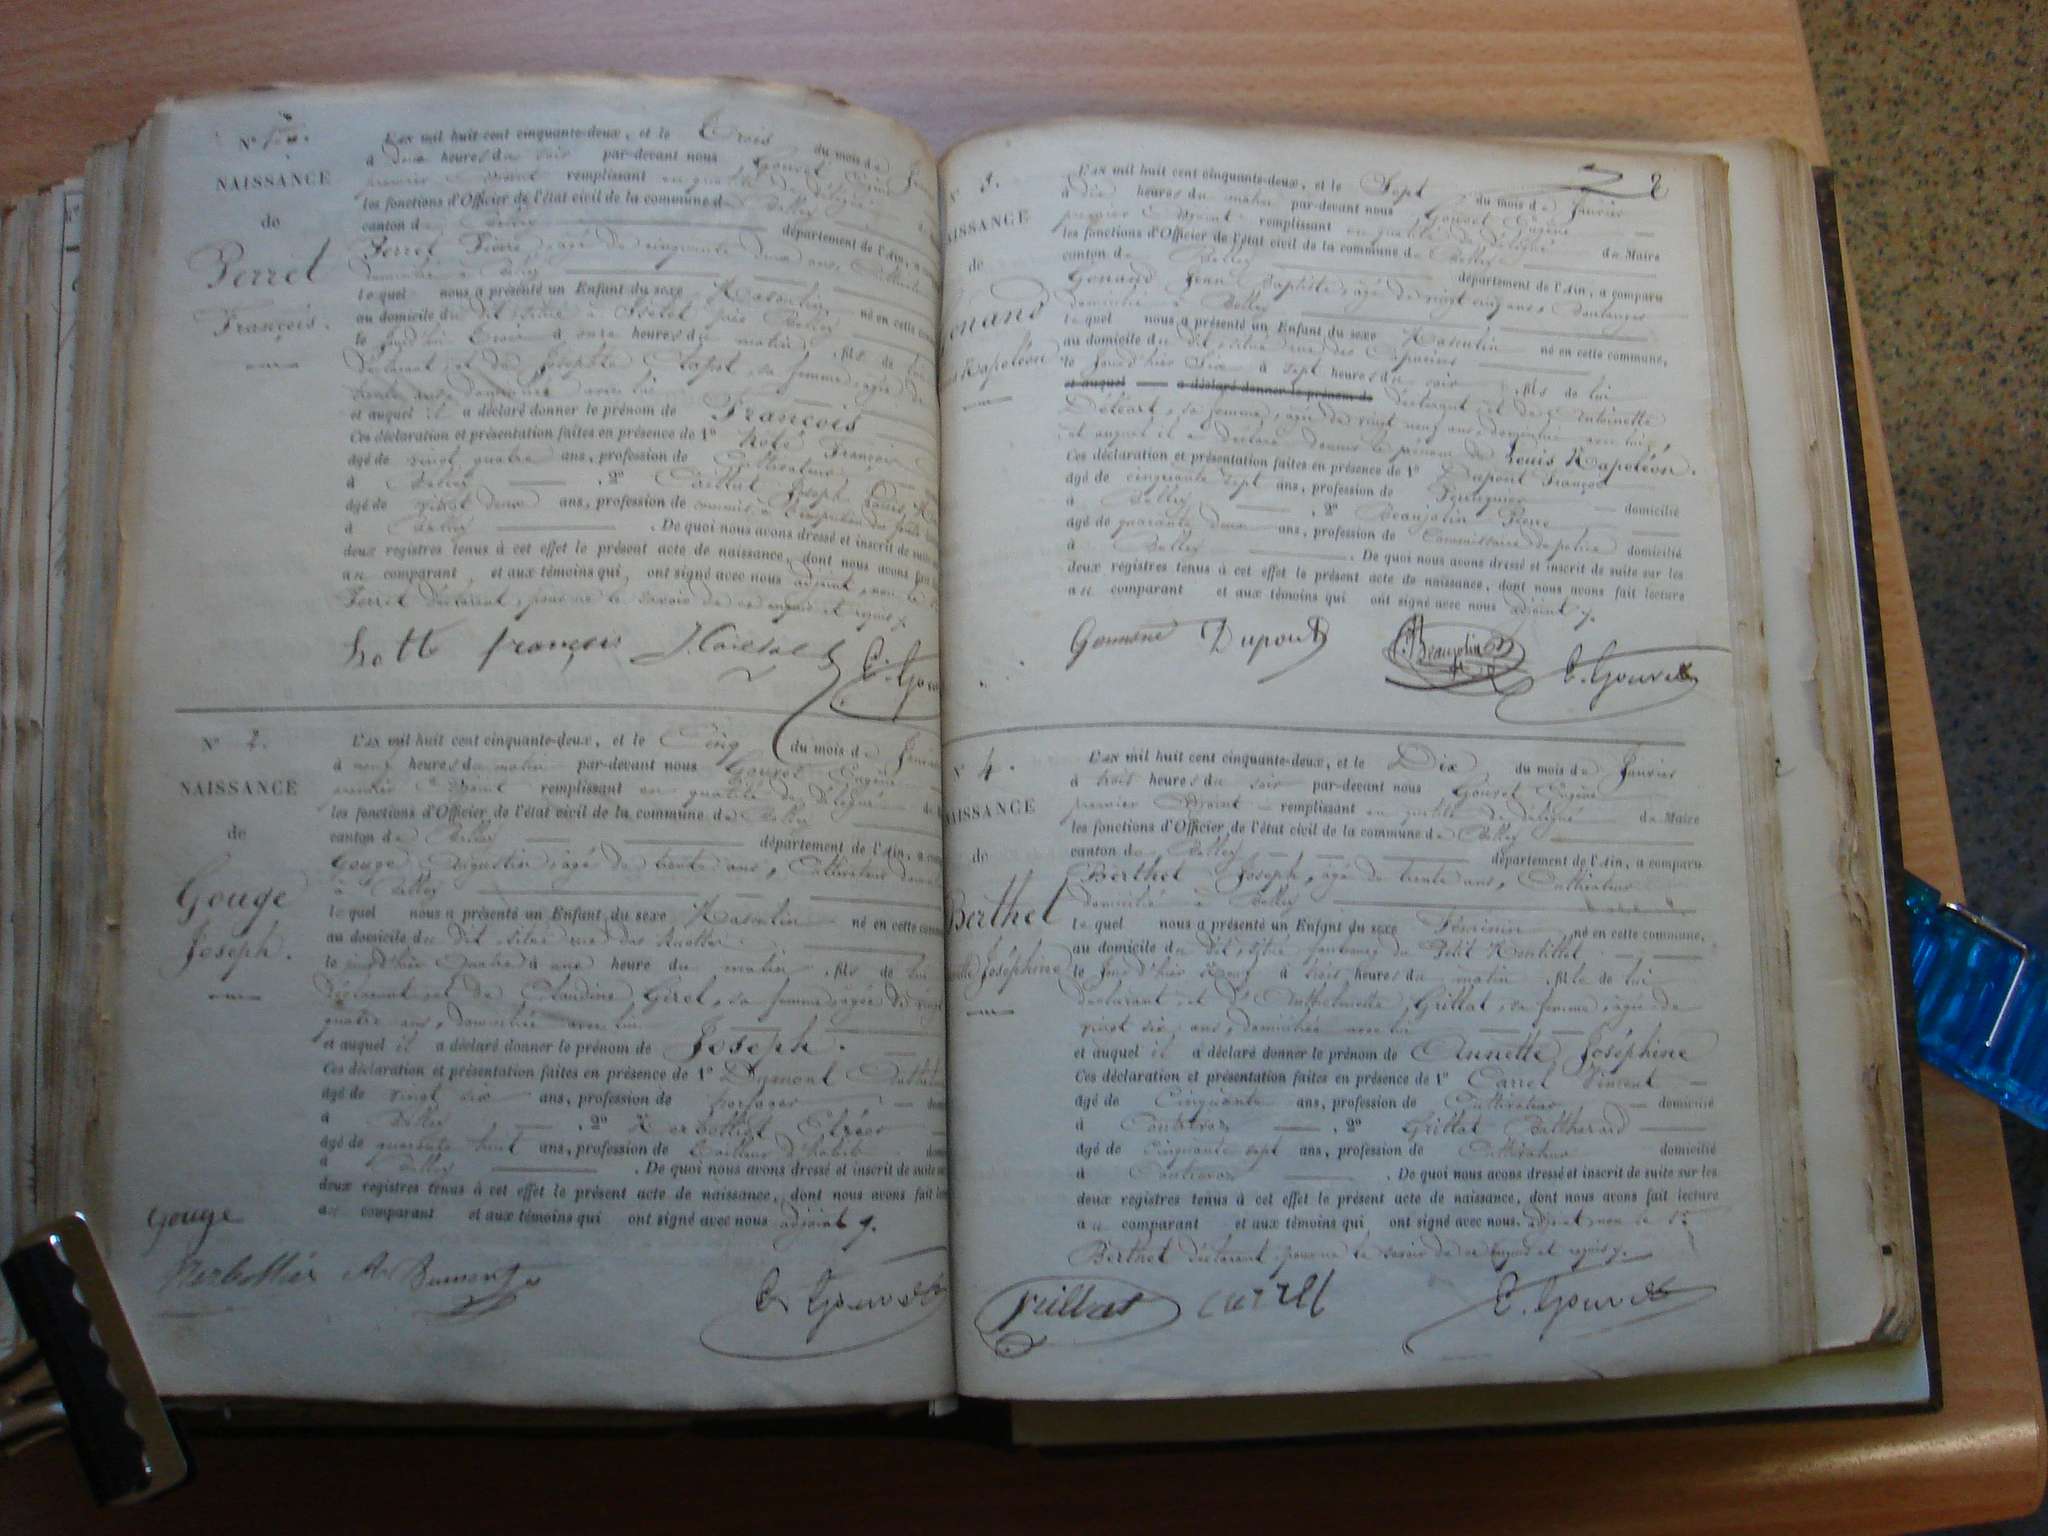 Nº 1er.
NAISSANCE
de
Perret
François.
L'an mil huit cent cinquante-deux, et le Trois du mois de
à deux heures du soir par-devant nous Gouvet
premier adjoint remplissant en qualité de délégué
les fonctions d'Officier de l'état civil de la commune de Belley
canton de Belley département de l'Ain, a
Perret Pierre, âgé de cinquante deux ans,
domicilié à Belley
lequel nous a présenté un Enfant du sexe Masculin né en cette
au domicile du dit situé à près Belley
le jourd'hui Trois à onze heures du matin, fils de lui
déclarant, et de Josephte, sa femme, âgée de
trente ans, domiciliée avec lui
et auquel il a déclaré donner le prénom de François
Ces déclaration et présentation faites en présence de 1º François
âgé de vingt quatre ans, profession de Cultivateur
à Belley, 2º Caillat Joseph Louis
âgé de vingt deux ans, profession de commis à
à Belley. De quoi nous avons dressé et inscrit de suite
deux registres tenus à cet effet le présent acte de naissance, dont nous avons fait
au comparant, et aux témoins qui, ont signé avec nous adjoint, non le
Perret déclarant, pour ne le savoir de ce enquis et requis
hotte françois J. Caillat E. Gouvet
Nº 2.
NAISSANCE
de
Gouge
Joseph.
L'an mil huit cent cinquante-deux, et le Cinq du mois de
à neuf heures du matin par-devant nous Gouvet Eugène
premier adjoint remplissant en qualité de délégué
les fonctions d'Officier de l'état civil de la commune de Belley
canton de Belley département de l'Ain, a
Gouge Augustin, âgé de trente ans, Cultivateur
à Belley
lequel nous a présenté un Enfant du sexe Masculin né en cette
au domicile du dit situé rue des
le jourd'hier Quatre à une heure du matin, fils de lui
déclarant et de Claudine Girel, sa femme, âgée de vingt
quatre ans, domiciliée avec lui
et auquel il a déclaré donner le prénom de Joseph.
Ces déclaration et présentation faites en présence de 1º Dumont
âgé de vingt six ans, profession de horloger
à Belley, 2º
âgé de quarante huit ans, profession de tailleur d'habits
à Belley. De quoi nous avons dressé et inscrit de suite
deux registres tenus à cet effet le présent acte de naissance, dont nous avons fait
au comparant et aux témoins qui ont signé avec nous adjoint
Gouge
E. Gouvet
2
Nº 3.
NAISSANCE
de
L'an mil huit cent cinquante-deux, et le Sept du mois de Janvier
à dix heures du matin par-devant nous Gouvet Eugène
premier adjoint remplissant en qualité de délégué du Maire
les fonctions d'Officier de l'état civil de la commune de Belley
canton de Belley département de l'Ain, a comparu
Gonand Jean Baptiste, âgé de vingt cinq ans, Boulanger
domicilié à Belley
lequel nous a présenté un Enfant du sexe Masculin né en cette commune,
au domicile du dit, situé rue des Capucins
le jourd'hier Six à sept heures du soir, fils de lui
et auquel a déclaré donner le prénom de déclarant et de Antoinette
sa femme, âgée de vingt neuf ans, domiciliée avec lui,
et auquel il a déclaré donner le prénom de Louis Napoléon.
Ces déclaration et présentation faites en présence de 1º Dupont François
âgé de cinquante sept ans, profession de Perruquier
à Belley, 2º Beaujolin Pierre domicilié
âgé de quarante deux ans, profession de Commissaire de police domicilié
à Belley. De quoi nous avons dressé et inscrit de suite sur les
deux registres tenus à cet effet le présent acte de naissance, dont nous avons fait lecture
au comparant et aux témoins qui ont signé avec nous adjoint
Dupont Beaujolin E. Gouvet
Nº 4.
NAISSANCE
de
Berthet
Joséphine
L'an mil huit cent cinquante-deux, et le Dix du mois de Janvier
à trois heures du soir par-devant nous Gouvet Eugène
premier adjoint remplissant en qualité de délégué du Maire
les fonctions d'Officier de l'état civil de la commune de Belley
canton de Belley département de l'Ain, a comparu
Berthet Joseph, âgé de trente ans, Cultivateur
domicilié à Belley
lequel nous a présenté un Enfant du sexe Féminin né en cette commune,
au domicile du dit, situé faubourg du Petit
le jourd'hier Neuf à trois heures du matin, fille de lui
déclarant et d'Anthelmette Grillat, sa femme, âgée de
vingt six ans, domiciliée avec lui
et auquel il a déclaré donner le prénom de Annette Joséphine
Ces déclaration et présentation faites en présence de 1º Carrel Vincent
âgé de Cinquante ans, profession de Cultivateur domicilié
à Contrevoz, 2º Grillat Balthazard
âgé de Cinquante sept ans, profession de Cultivateur domicilié
à Contrevoz. De quoi nous avons dressé et inscrit de suite sur les
deux registres tenus à cet effet le présent acte de naissance, dont nous avons fait lecture
au comparant et aux témoins qui ont signé avec nous adjoint, non le Sr
Berthet déclarant pour ne le savoir de ce enquis et requis
E. Gouvet